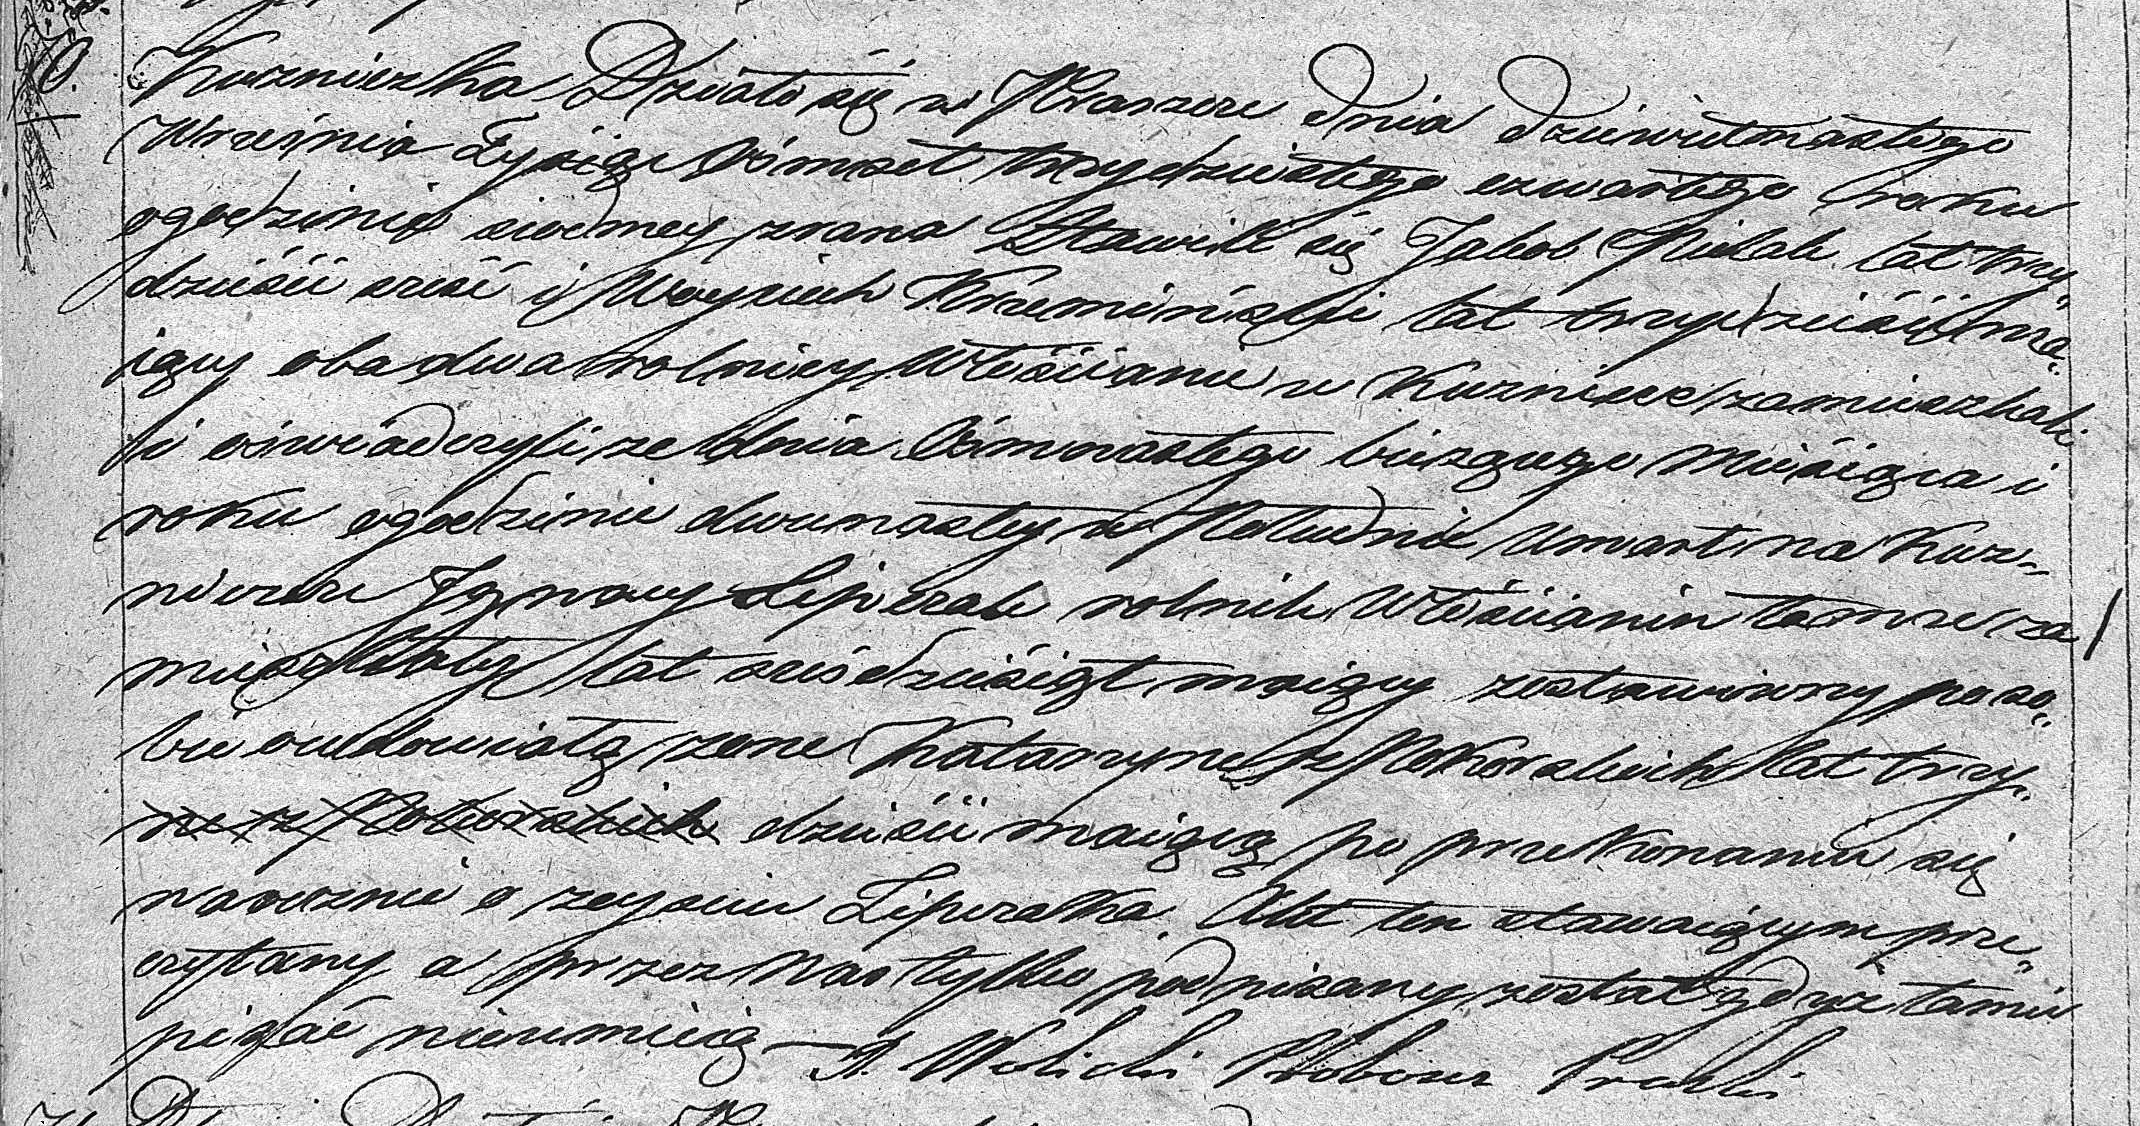 70. Kuzniczka Działo się w Kraszew dnia dziewietnastego
Wrzesnia Tysiąc Osmset trzydziestego czwartego roku
ogodzinie siodmey zrana Stawili się Jakob lat trzy„
dzieści sześć i Woyciech Krzemiński lat trzydzieści ma„
iący obadwa rolnicy Włościanie w Kuznicce zamieszkali
i oswiadczyli, ze dnia Osmnastego bieżącego Miesiąca i
roku ogodzinie dwunastey w Południe umarł na Kuz„
niczce Ignacy Lipczak rolnik Włościanin tamze za
mieszkały lat sześćdziesiąt maiący zostawiwszy po so„
bie owdowiałą zone Katarzyne z Kokorskich lat trzy„
ne z Kokorskich dzieści maiącą, po przekonaniu się
naocznie o zeysciu Lipczaka. Akt ten stawaiącym prze„
czytany a przez Nas tylko podpisany został gdyz tamie
pisać nieumieią — Wolicki Proboszcz